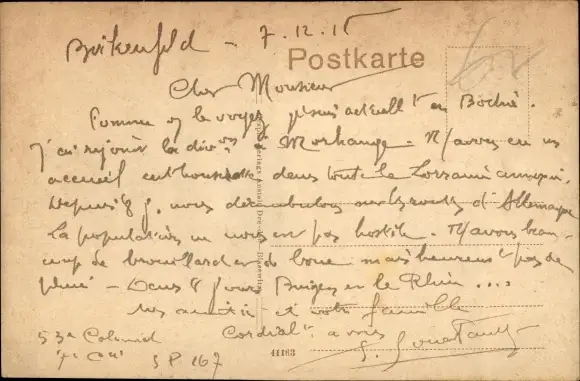 Birkenfeld - 7.12.18
Postkarte
Cher Monsieur
Comme vs le voyez je suis actuellt en Bochie.
J'ai rejoint la divon à Morhange - N/avons eu un
accueil enthousiaste dans toute la Lorraine annexée.
Depuis 8 j. nous déambulons sur les routes d'Allemagne
La population ne nous est pas hostile. N/avons beau-
coup de brouillard et de boue mais heureust pas de
pluie - Dans 8 jours Bingen et le Rhin ....
Mes amitiés et votre famille
Cordialt à vous
53e Colonial
7e Cie
SP 167
41163